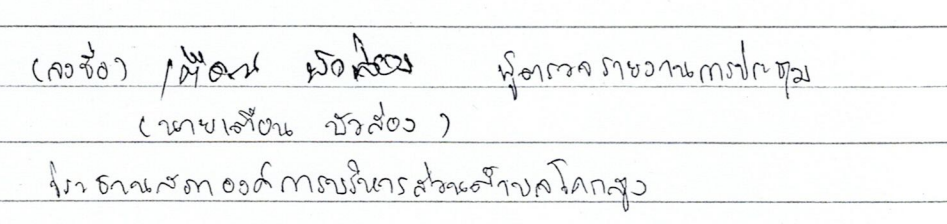 (ลงชื่อ) เตือน บัวส่อง ผู้ตรวจรายงานการประชุม
(นายเตือน บัวส่อง)
ประธานสภาองค์การบริหารส่วนตำบลโคกสูง